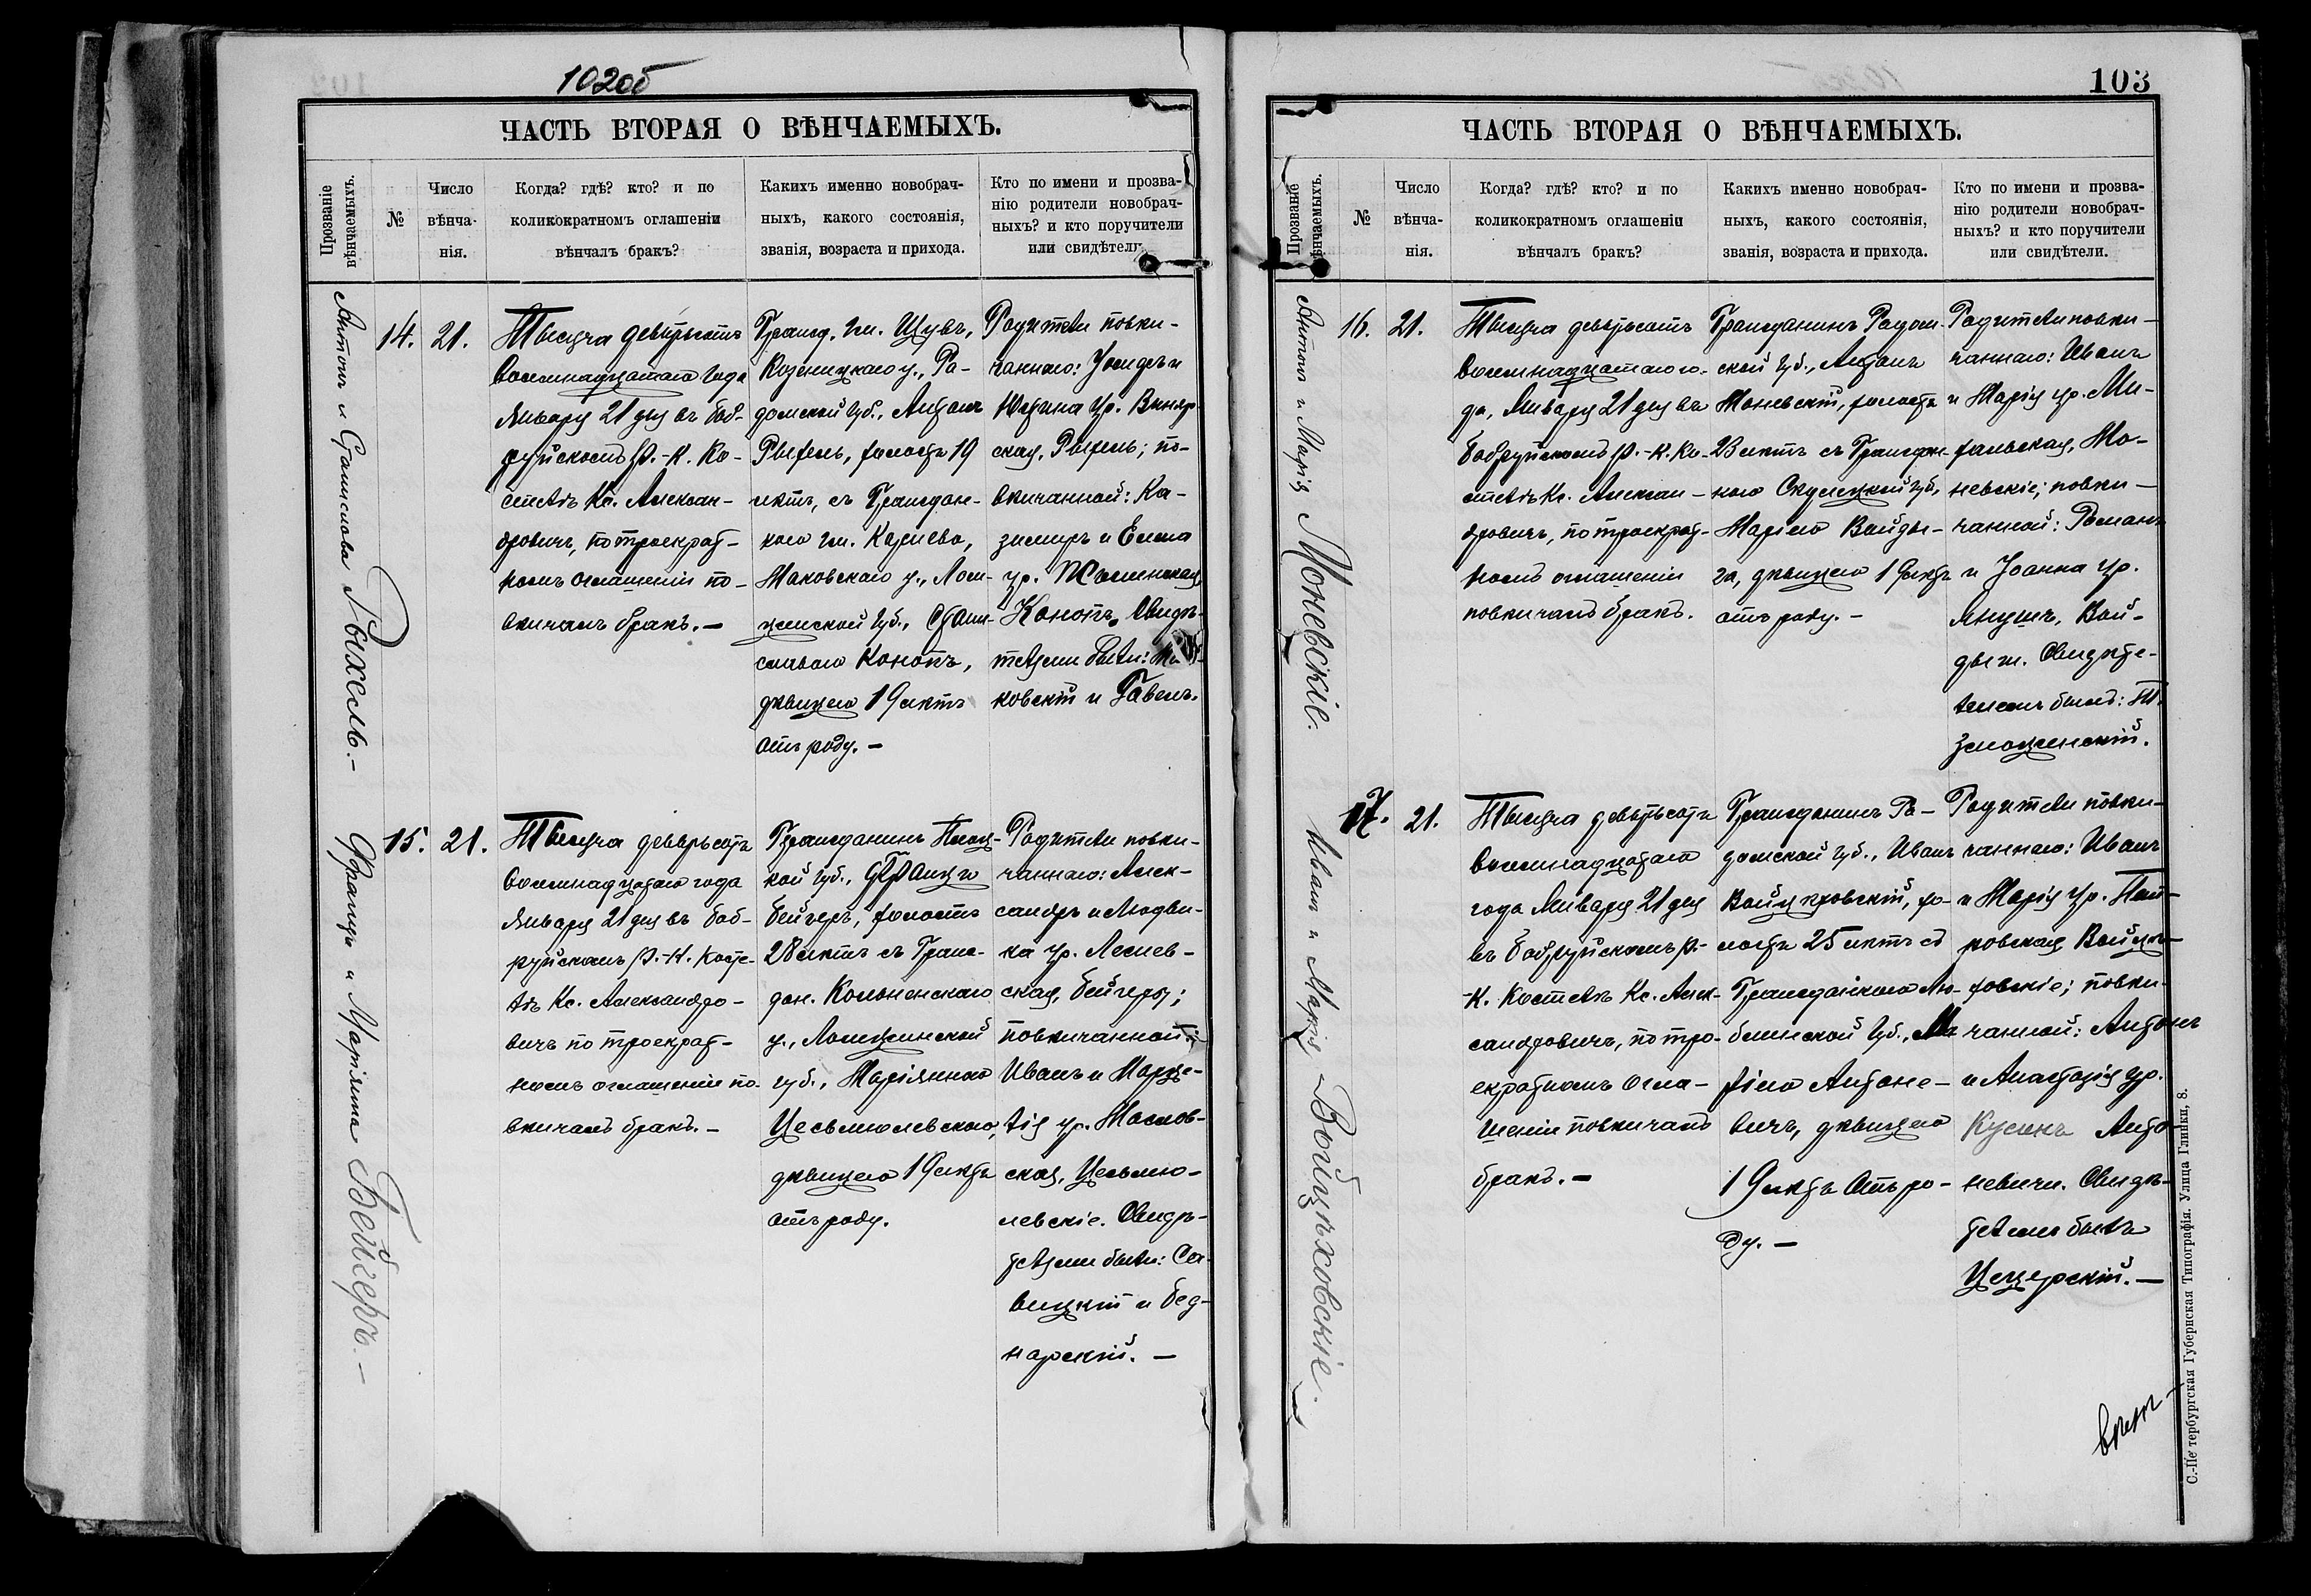 102об
ЧАСТЬ ВТОРАЯ О ВѢНЧАЕМЫХЪ.
Прозваніе
вѣнчаемыхъ.
№
Число
вѣнча-
нія.
Когда? гдѣ? кто? и по
коликократномъ оглашеніи
вѣнчалъ бракъ?
Какихъ именно новобрач-
ныхъ, какого состоянія,
званія, возраста и прихода.
Кто по имени и прозва-
нію родители новобрач-
ныхъ? и кто поручители
или свидѣтели.
Антонъ и Станислава Рыхель.-
14.
21.
Тысяча девятьсотъ
восемнадцатаго года
Января 21 дня въ Боб-
руйскомъ Р.-К. Ко-
стелѣ Кс. Алексан-
дровичъ, по троекрат-
номъ оглашеніи по-
вѣнчалъ бракъ.-
Гражд. гм.
Козеницкаго у., Ра-
домской губ., Антонъ
Рыхель, холостъ 19
лѣтъ, съ Граждан-
кою гм.
Маковскаго у., Лом-
жинской губ., Стани-
славою Конопъ,
дѣвицею 19 лѣтъ
отъ роду.-
Родители повѣн-
чаннаго:
Рыхель; по-
вѣнчанной: Ка-
зимиръ и Елена
ур.
Конопъ. Свидѣ-
телями были:
ковскій и Гавенъ.
Францъ и Маріянна Бейгеръ.-
15.
21.
Тысяча девятьсотъ
восемнадцатаго года
Января 21 дня въ Боб-
руйскомъ Р.-К. Косте-
лѣ Кс. Александро-
вичъ по троекрат-
номъ оглашеніи по-
вѣнчалъ бракъ.-
Гражданинъ Плоц-
кой губ., Францъ
Бейгеръ, холостъ
28 лѣтъ съ Граж-
дан. Кольненскаго
у., Ломжинской
губ., Маріянною
Цесьмолевскою,
дѣвицею 19 лѣтъ
отъ роду.
Родители повѣн-
чаннаго: Алек-
сандръ и Людви-
ка ур. Лесnew-
ская, Бейгеры;
повѣнчанной:
Иванъ и Марце-
лія ур. Маслов-
ская, Цесьмо-
левскіе. Свидѣ-
телями были: Са-
вицкій и Бед-
нарскій.-
103
ЧАСТЬ ВТОРАЯ О ВѢНЧАЕМЫХЪ.
Прозваніе
вѣнчаемыхъ.
№
Число
вѣнча-
нія.
Когда? гдѣ? кто? и по
коликократномъ оглашеніи
вѣнчалъ бракъ?
Какихъ именно новобрач-
ныхъ, какого состоянія,
званія, возраста и прихода.
Кто по имени и прозва-
нію родители новобрач-
ныхъ? и кто поручители
или свидѣтели.
Антонъ и Марія Моневскіе.
16.
21.
Тысяча девятьсотъ
восемнадцатаго го-
да, Января 21 дня въ
Бобруйскомъ Р.-К. Ко-
стелѣ Кс. Алексан-
дровичъ, по троекрат-
номъ оглашеніи
повѣнчалъ бракъ.
Гражданинъ Радом-
ской губ., Антонъ
Моневскій, холостъ
23 лѣтъ съ Граждан-
кою губ.,
Маріею Войды-
га, дѣвицею 19 лѣтъ
отъ роду.-
Родители повѣн-
чаннаго: Иванъ
и Марія ур. Ми-
хальская, Мо-
невскіе; повѣн-
чанной: Романъ
и Іоанна ур.
Янушъ, Вой-
дыги. Свидѣте-
лемъ былъ:
Иванъ и Марія Войцѣховскіе.
17.
21.
Тысяча девятьсотъ
восемнадцатаго
года Января 21 дня
въ Бобруйскомъ Р.-
К. Костелѣ Кс. Алек-
сандровичъ, по тро-
екратномъ огла-
шеніи повѣнчалъ
бракъ.-
Гражданинъ Ра-
домской губ., Иванъ
Войцѣховскій, хо-
лостъ 25 лѣтъ съ
Гражданкою Лю-
блинской губ., Ма-
ріею Антоне-
вичъ, дѣвицею
19 лѣтъ отъ ро-
ду.-
Родители повѣн-
чаннаго: Иванъ
и Марія ур.
ровская Войцѣ-
ховскіе; повѣн-
чанной: Антонъ
и Анастазія ур.
Антo-
невичи. Свидѣ-
телемъ былъ
С.-Петербургская Губернская Типографія. Улица Глинки, 8.